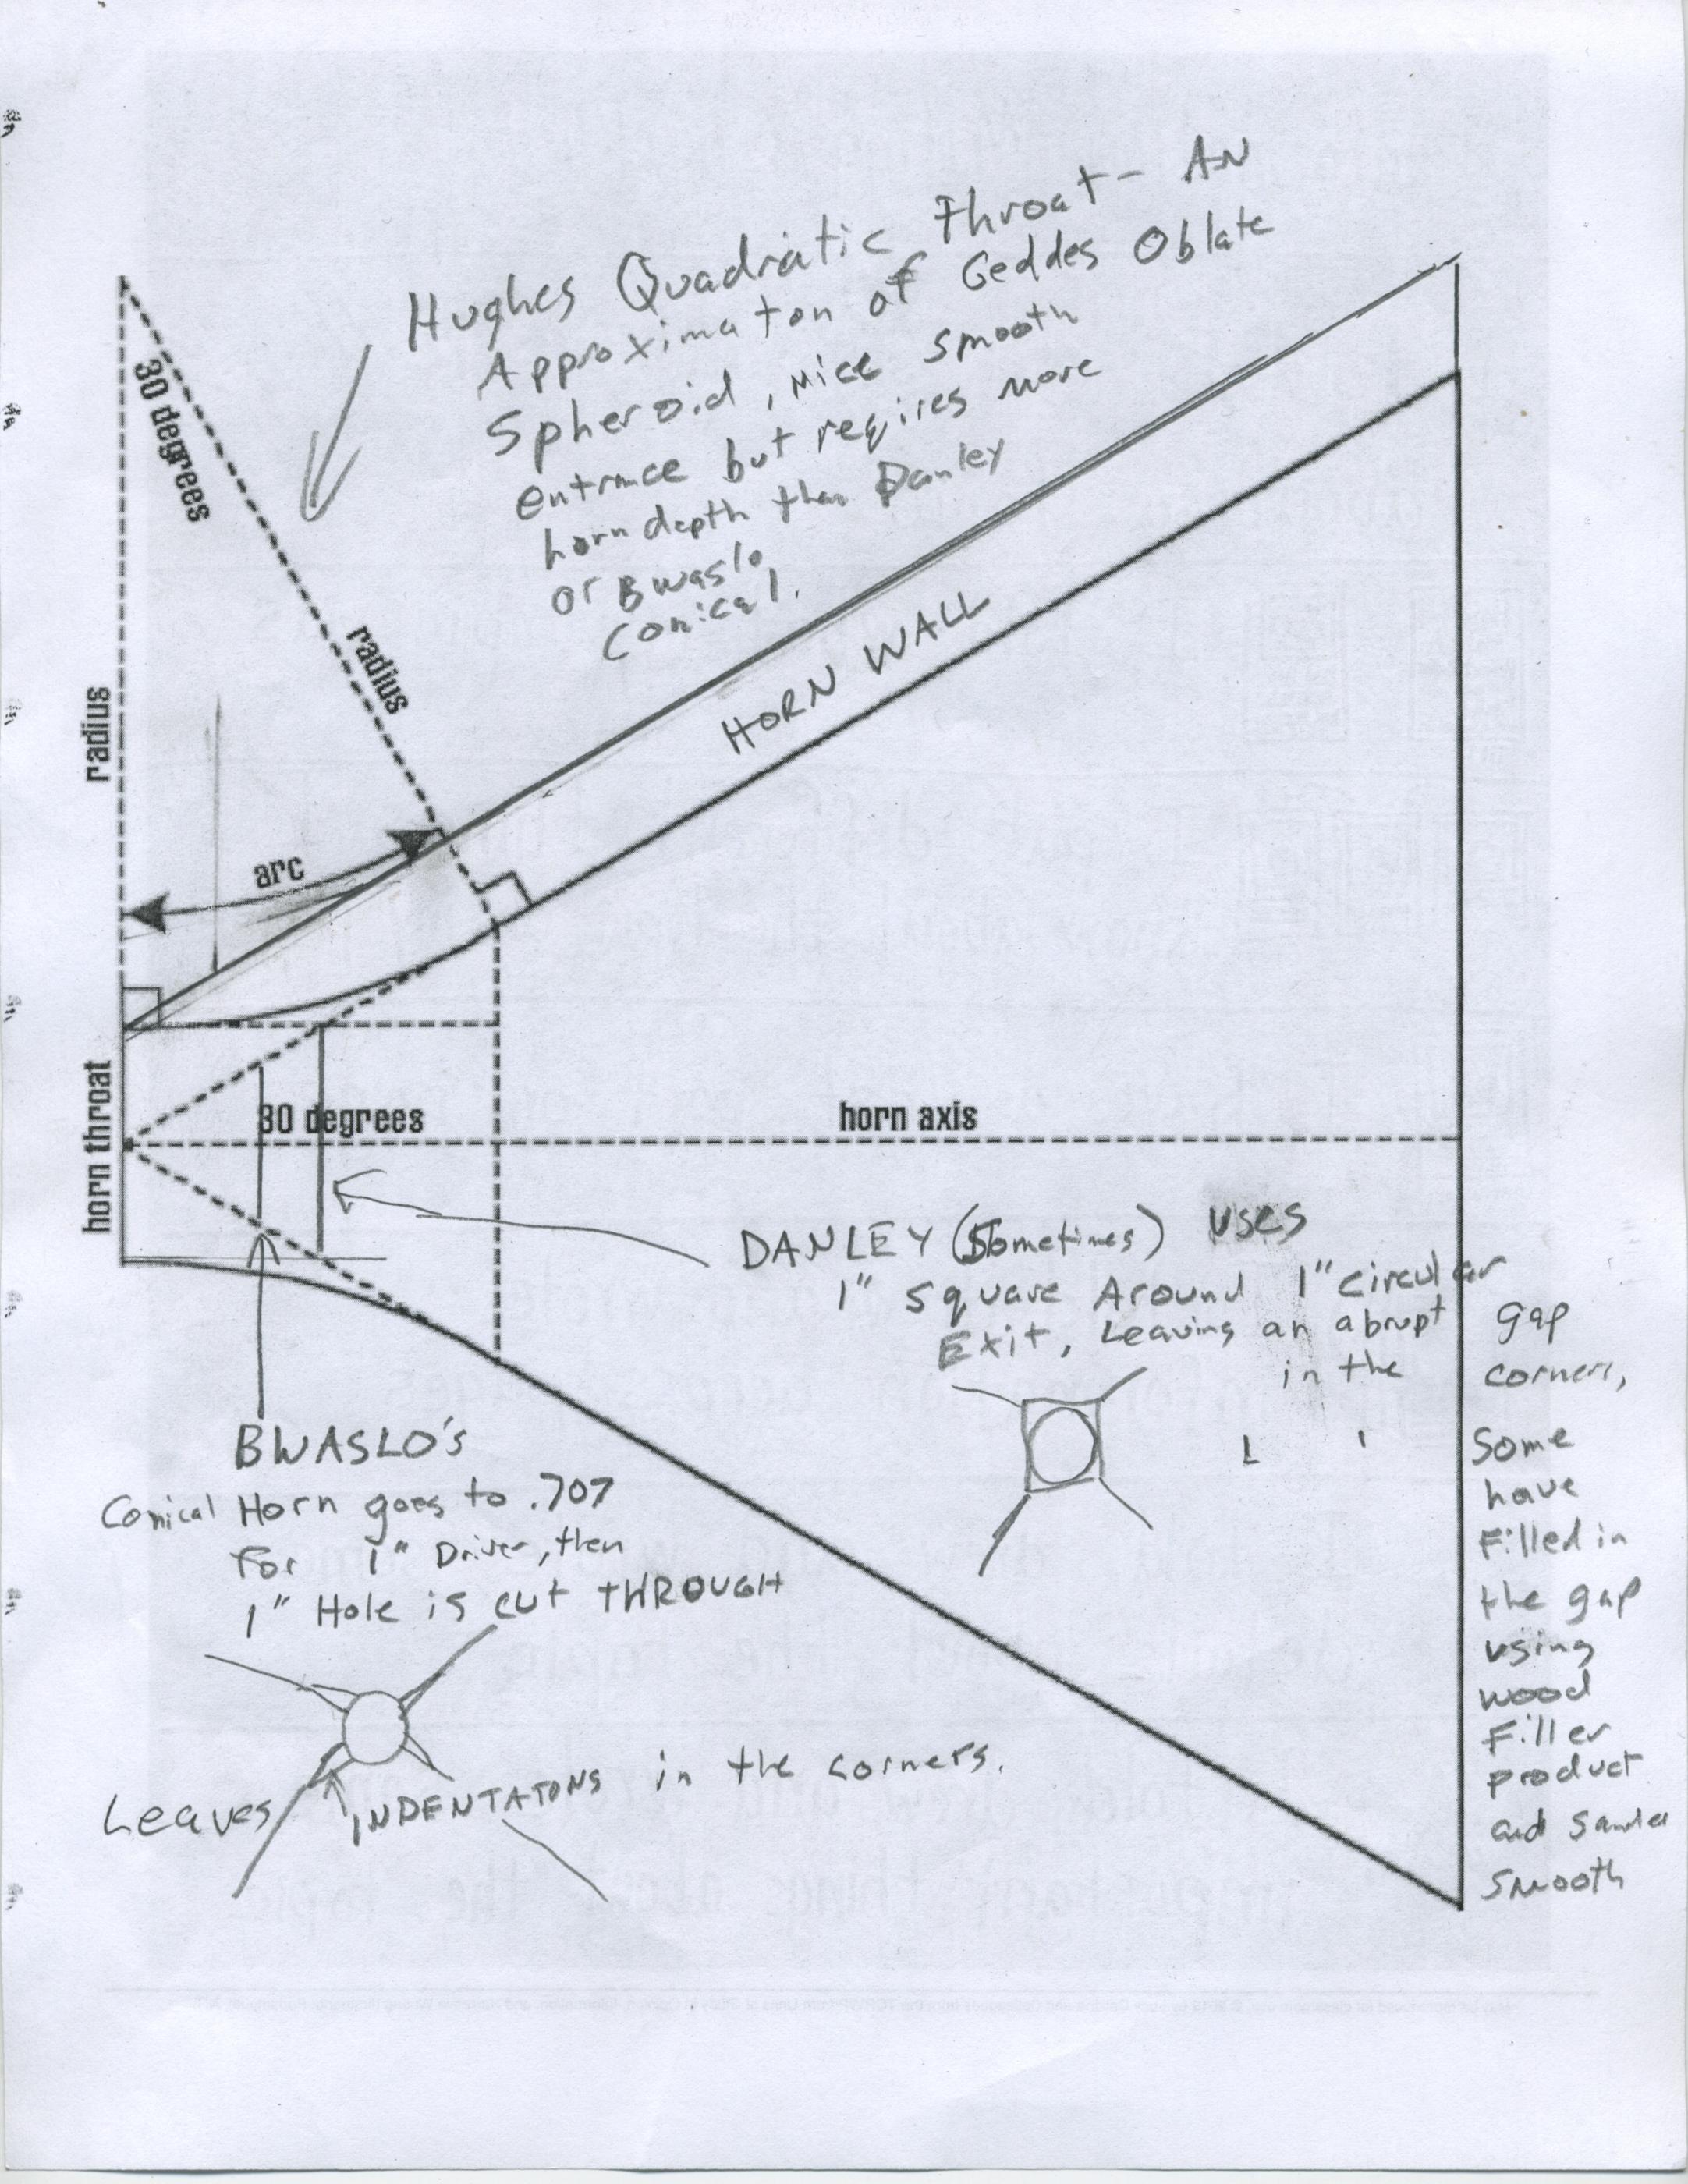 Hughes Quadratic Throat - AN
Approximaton of Geddes Oblate
Spheroid, Nice smooth
entrance but reqires more
horn depth than Danley
or Bwaslo
Conical.
30 degrees
radius
radius
HORN WALL
arc
horn throat
30 degrees
horn axis
DANLEY (Sometimes) uses
1" square Around 1" circular
Exit, Leaving an abrupt gap
in the corners,
Some
have
Filled in
the gap
using
wood
Filler
product
and sanded
smooth
BWASLO's
Conical Horn goes to .707
For 1" Driver, then
1" Hole is cut THROUGH
Leaves INDENTATONS in the corners.